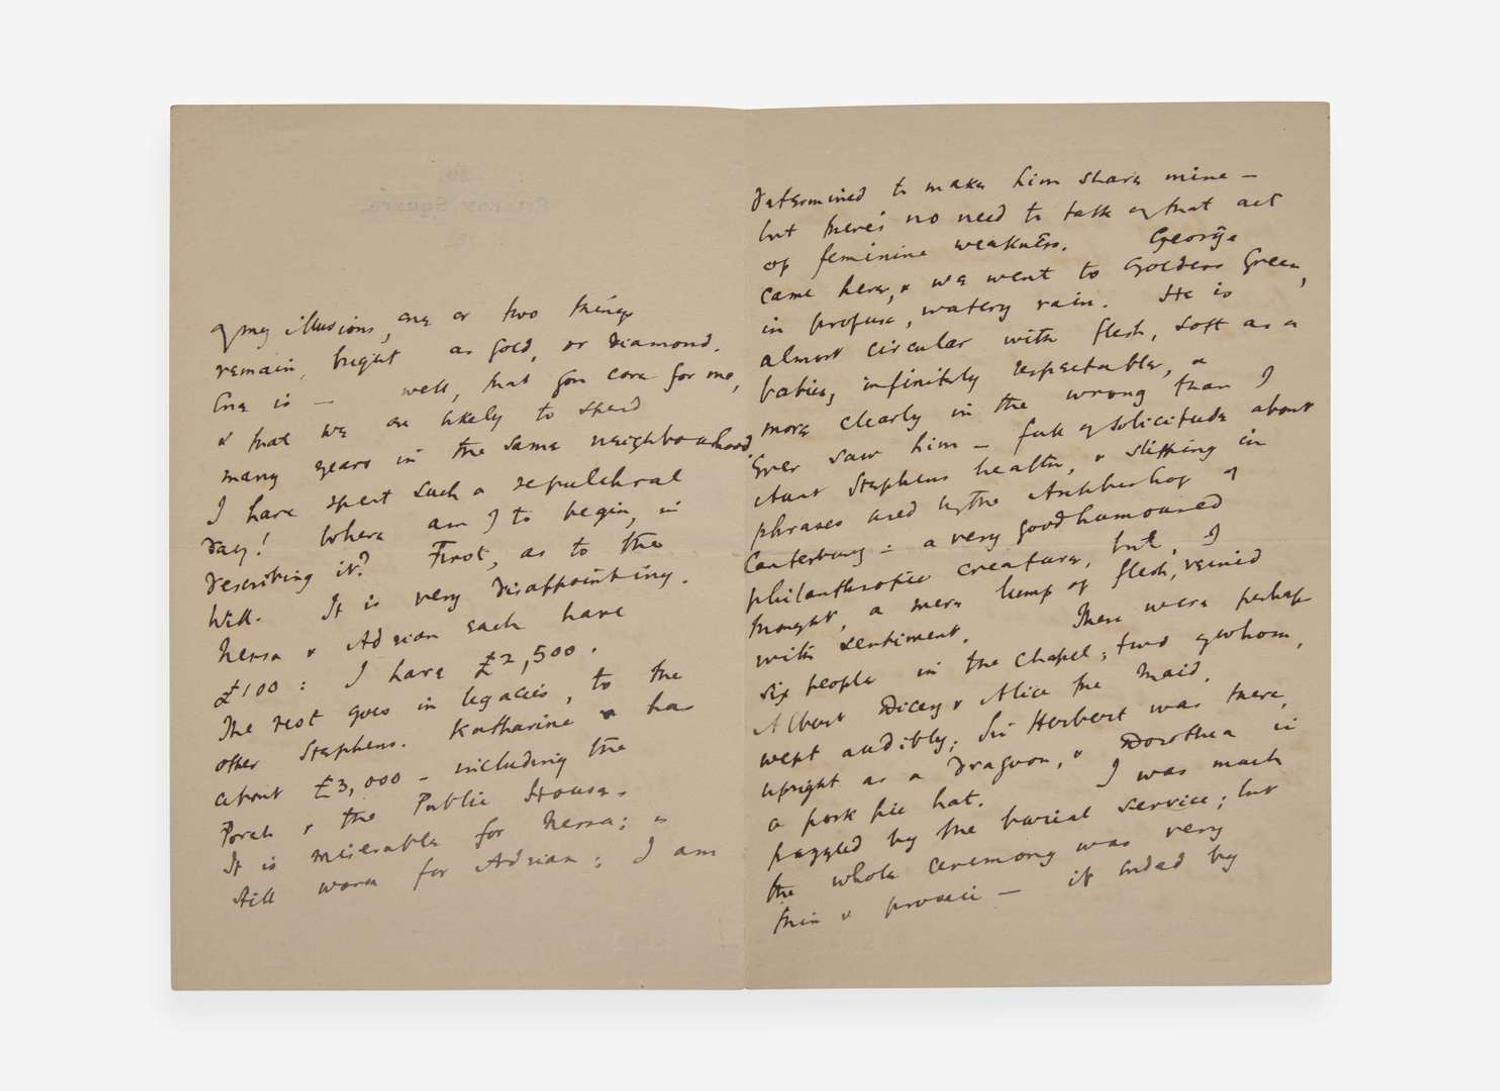 of my illusions, one or two things
remain, bright as gold, or diamond.
One is — well, that you care for me,
& that we are likely to spend
many years in the same neighbourhood.
I have spent such a sepulchral
day! Where am I to begin, in
describing it? First, as to the
Will. It is very disappointing.
Nessa & Adrian each have
£100: I have £2,500.
The rest goes in legacies, to the
other Stephens. Katharine has
about £3,000 – including the
Porch & the Public House.
It is miserable for Nessa; &
still worse for Adrian; I am
determined to make him share mine —
but there's no need to talk of that act
of feminine weakness. George
came here, & we went to Golders Green,
in profuse, watery rain. He is
almost circular with flesh, soft as a
babies, infinitely respectable, &
more clearly in the wrong than I
ever saw him — full of solicitude about
Aunt Stephens health, & slipping in
phrases used by the Archbishop of
Canterbury – a very goodhumoured
philanthropic creature, but, I
thought, a mere lump of flesh, veined
with sentiment. There were perhaps
six people in the chapel; two of whom,
Albert Dicey & Alice the maid,
wept audibly; Sir Herbert was there,
upright as a Dragoon, & Dorothea in
a pork pie hat. I was much
puzzled by the burial service; but
the whole ceremony was very
thin & prosaic — it ended by
Square